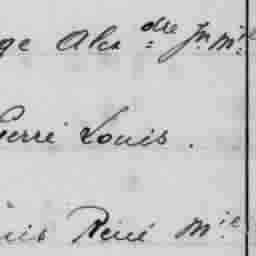 ge Alex dre Jn Mie
Pierre Louis.
uis René Mie